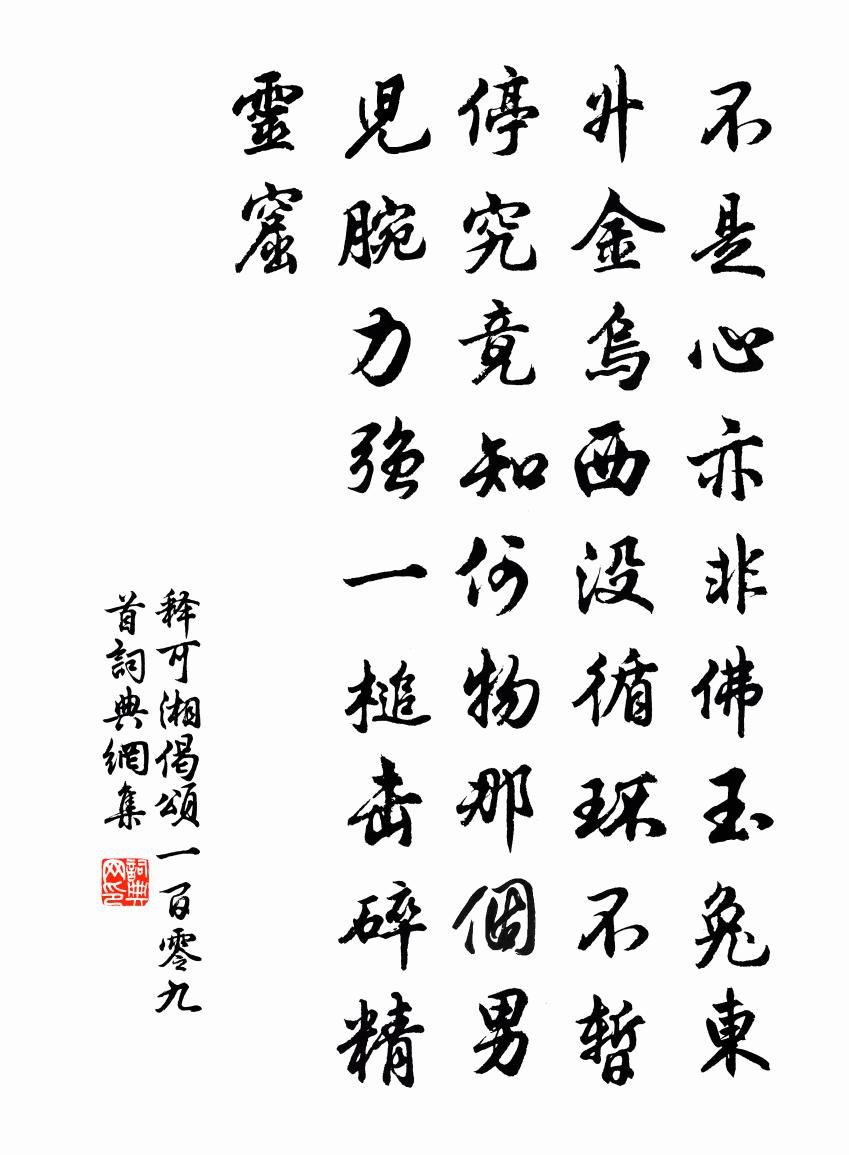 不是心亦非佛玉兔東
升金烏西没循环不暫
停究竟知何物那個男
児腕力強一槌击碎精
靈窟
释可湘偈頌一百零九
首詞典網集
詞典网印